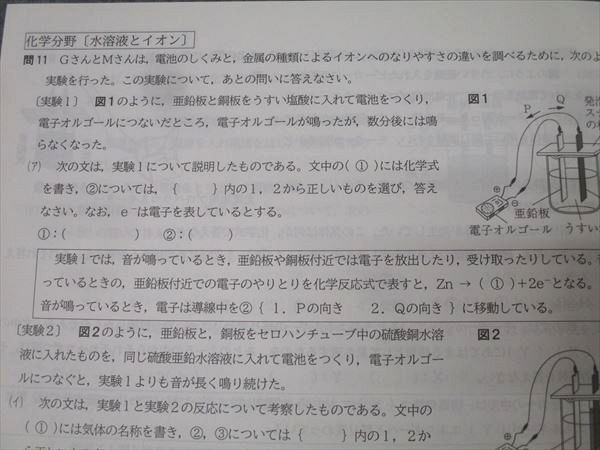 化学分野〔水溶液とイオン〕
問11 GさんとMさんは，電池のしくみと，金属の種類によるイオンへのなりやすさの違いを調べるために，次のよ
実験を行った。この実験について，あとの問いに答えなさい。
〔実験1〕 図1のように，亜鉛板と銅板をうすい塩酸に入れて電池をつくり，
電子オルゴールにつないだところ，電子オルゴールが鳴ったが，数分後には鳴
らなくなった。
(ア) 次の文は，実験1について説明したものである。文中の( ① )には化学式
を書き，②については，｛ ｝内の1，2から正しいものを選び，答え
なさい。なお，e⁻は電子を表しているとする。
①：( ) ②：( )
図1
P Q
発泡
ス
の
亜鉛板
電子オルゴール うすい
実験1では，音が鳴っているとき，亜鉛板や銅板付近では電子を放出したり，受け取ったりしている。音
っているときの，亜鉛板付近での電子のやりとりを化学反応式で表すと，Zn → ( ① )+2e⁻となる。
音が鳴っているとき，電子は導線中を②｛ 1．Pの向き 2．Qの向き ｝に移動している。
〔実験2〕 図2のように，亜鉛板と，銅板をセロハンチューブ中の硫酸銅水溶
液に入れたものを，同じ硫酸亜鉛水溶液に入れて電池をつくり，電子オルゴー
ルにつなぐと，実験1よりも音が長く鳴り続けた。
図2
(イ) 次の文は，実験1と実験2の反応について考察したものである。文中の
( ① )には気体の名称を書き，②，③については｛ ｝内の1，2か